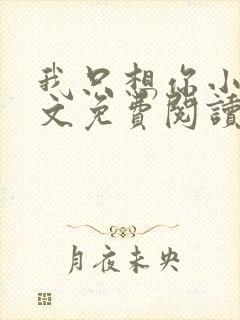 我只想你小
文免費閱讀
月夜未央